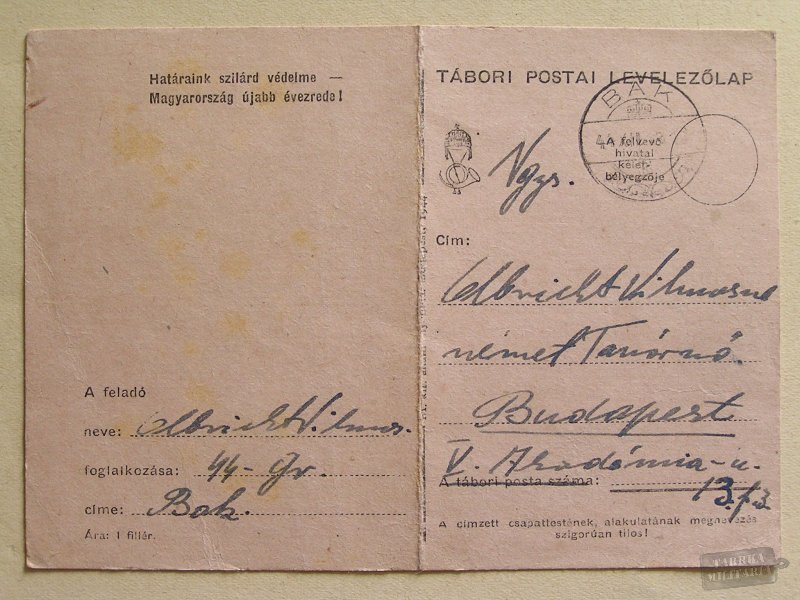 Határaink szilárd védelme —
Magyarország újabb évezrede!
A feladó
neve: Olbricht Vilmos.
foglalkozása: 44-
címe: Bak.
Ára: 1 fillér.
TÁBORI POSTAI LEVELEZŐLAP
BAK
A felvevő
hivatal
kelet-
bélyegzője
Ngys.
Cím:
Olbricht Vilmosné
német Tanárnő.
Budapest
V. Akadémia-u.
A tábori posta száma:
13. I. 3.
A címzett csapattestének, alakulatának megnevezése
szigorúan tilos!
TARRKA
MILITARIA